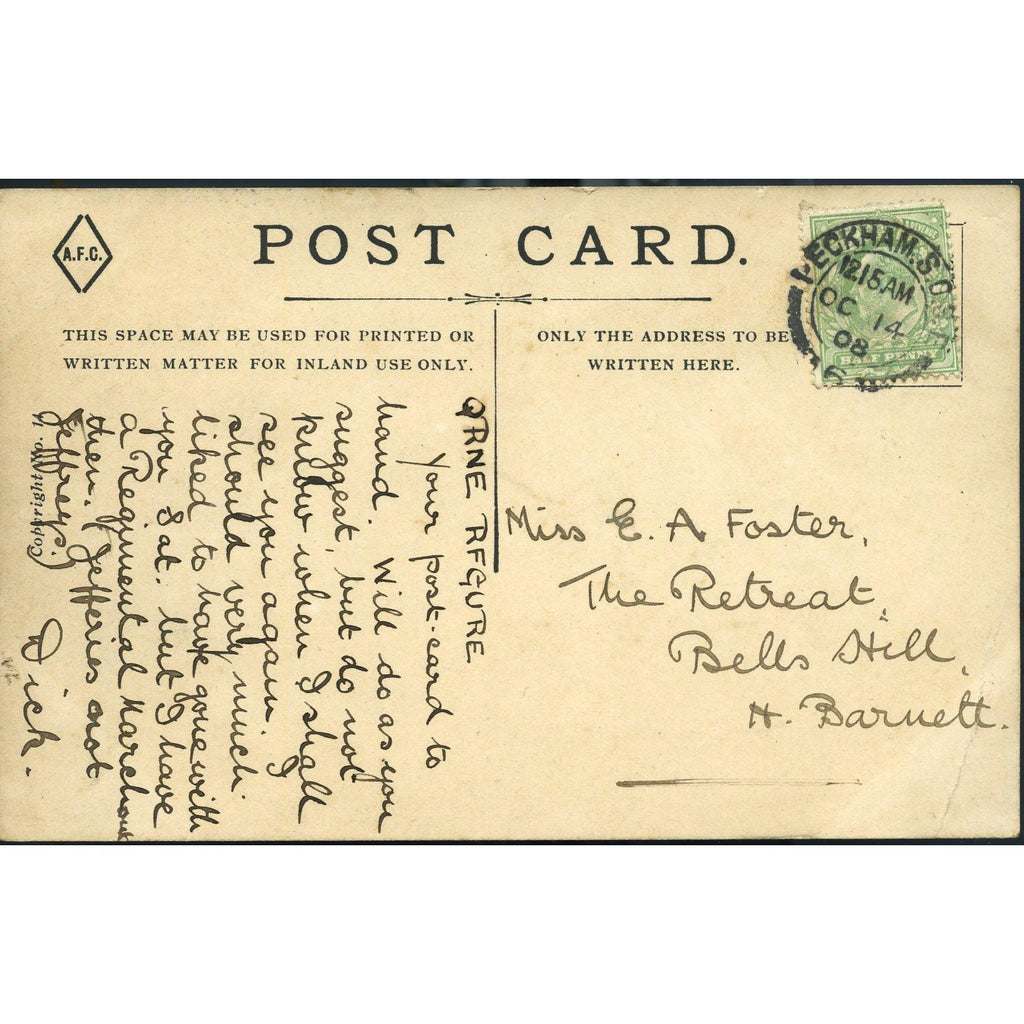 A.F.C.
POST CARD.
THIS SPACE MAY BE USED FOR PRINTED OR
WRITTEN MATTER FOR INLAND USE ONLY.
ONLY THE ADDRESS TO BE
WRITTEN HERE.
PECKHAM. S.O
12.15 AM
OC 14
08
HALF PENNY
Miss E. A Foster,
The Retreat,
Bells Hill,
H. Barnett.
Your post-card to
hand. Will do as you
suggest, but do not
know when I shall
see you again. I
should very much
liked to have gone with
you Sat. but I have
a Regimental March out
then. (Jefferies not
Jeffreys.)
Dick.
Copyright No.